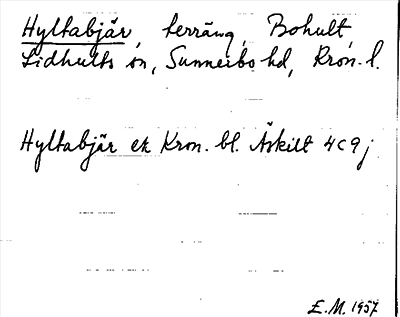 Hyltabjär, terräng, Bohult,
Lidhults sn, Sunnerbo hd, Kron. l.
Hyltabjär ek Kron. bl. Äskilt 4c9j
E.M. 1957